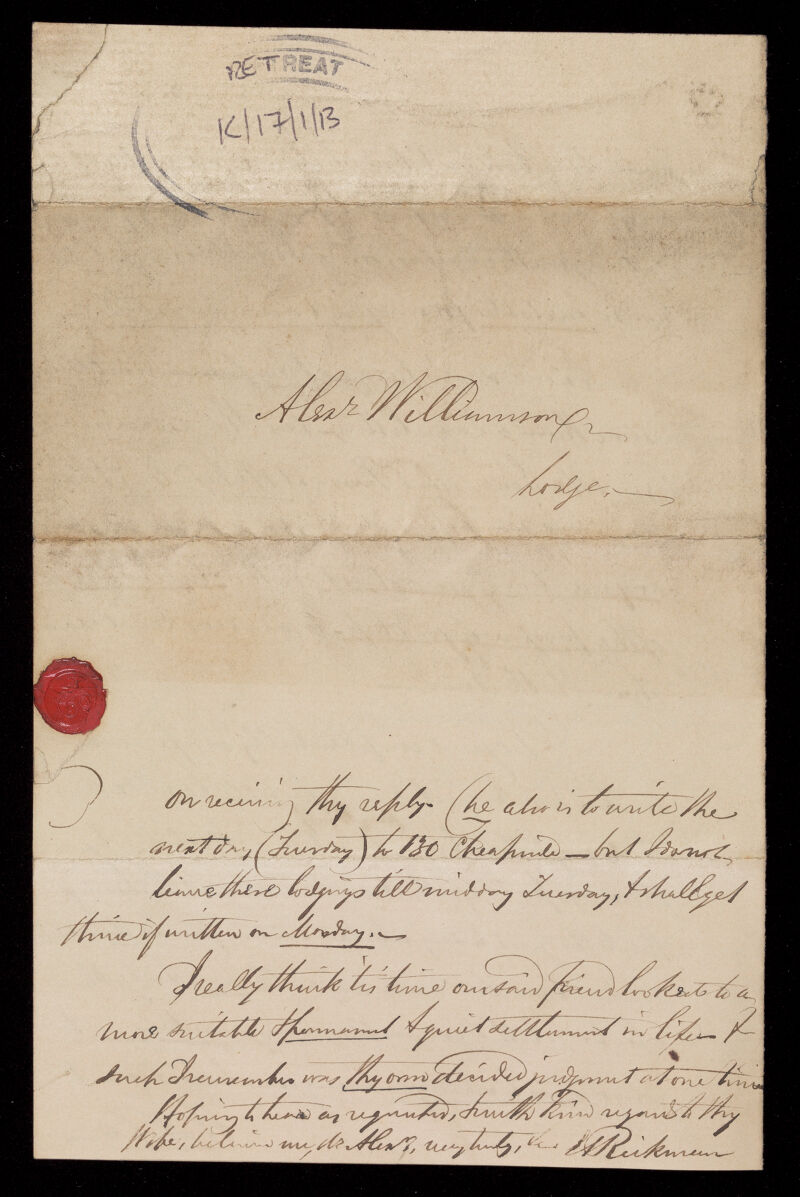 RETREAT
RETREAT
K/17/1/13
Alexr Williamson
Lodge.
on receiving thy reply - (he also is to write the
next day (Tuesday) to 130 Cheapside — but I do not
leave these lodgings till midday Tuesday, & shall get
thine if written on Monday. —
I really think 'tis time our said friend looked to a
more suitable & permanent & quiet settlement in life &
such I remember was thy own decided judgment at one time
Hoping to hear as requested, with kind regards to thy
Wife, believe me, dr Alexr, very truly, J Rickman